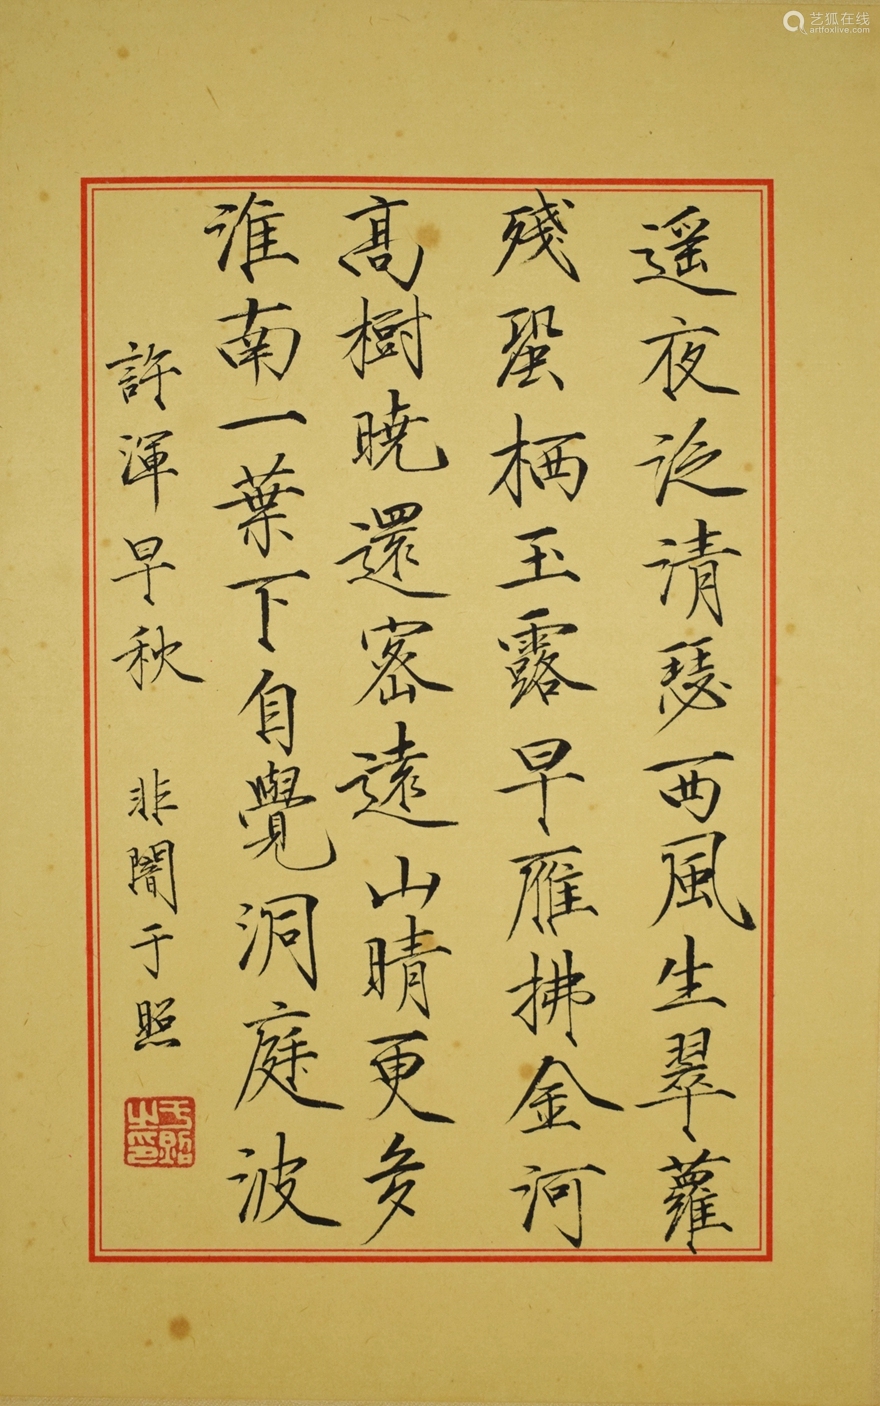 遥夜泛清瑟西風生翠蘿
殘蛩栖玉露早雁拂金河
高樹曉還密遠山晴更多
淮南一葉下自覺洞庭波
許渾早秋 非闇于照
于照之印
艺狐在线
artfoxlive.com